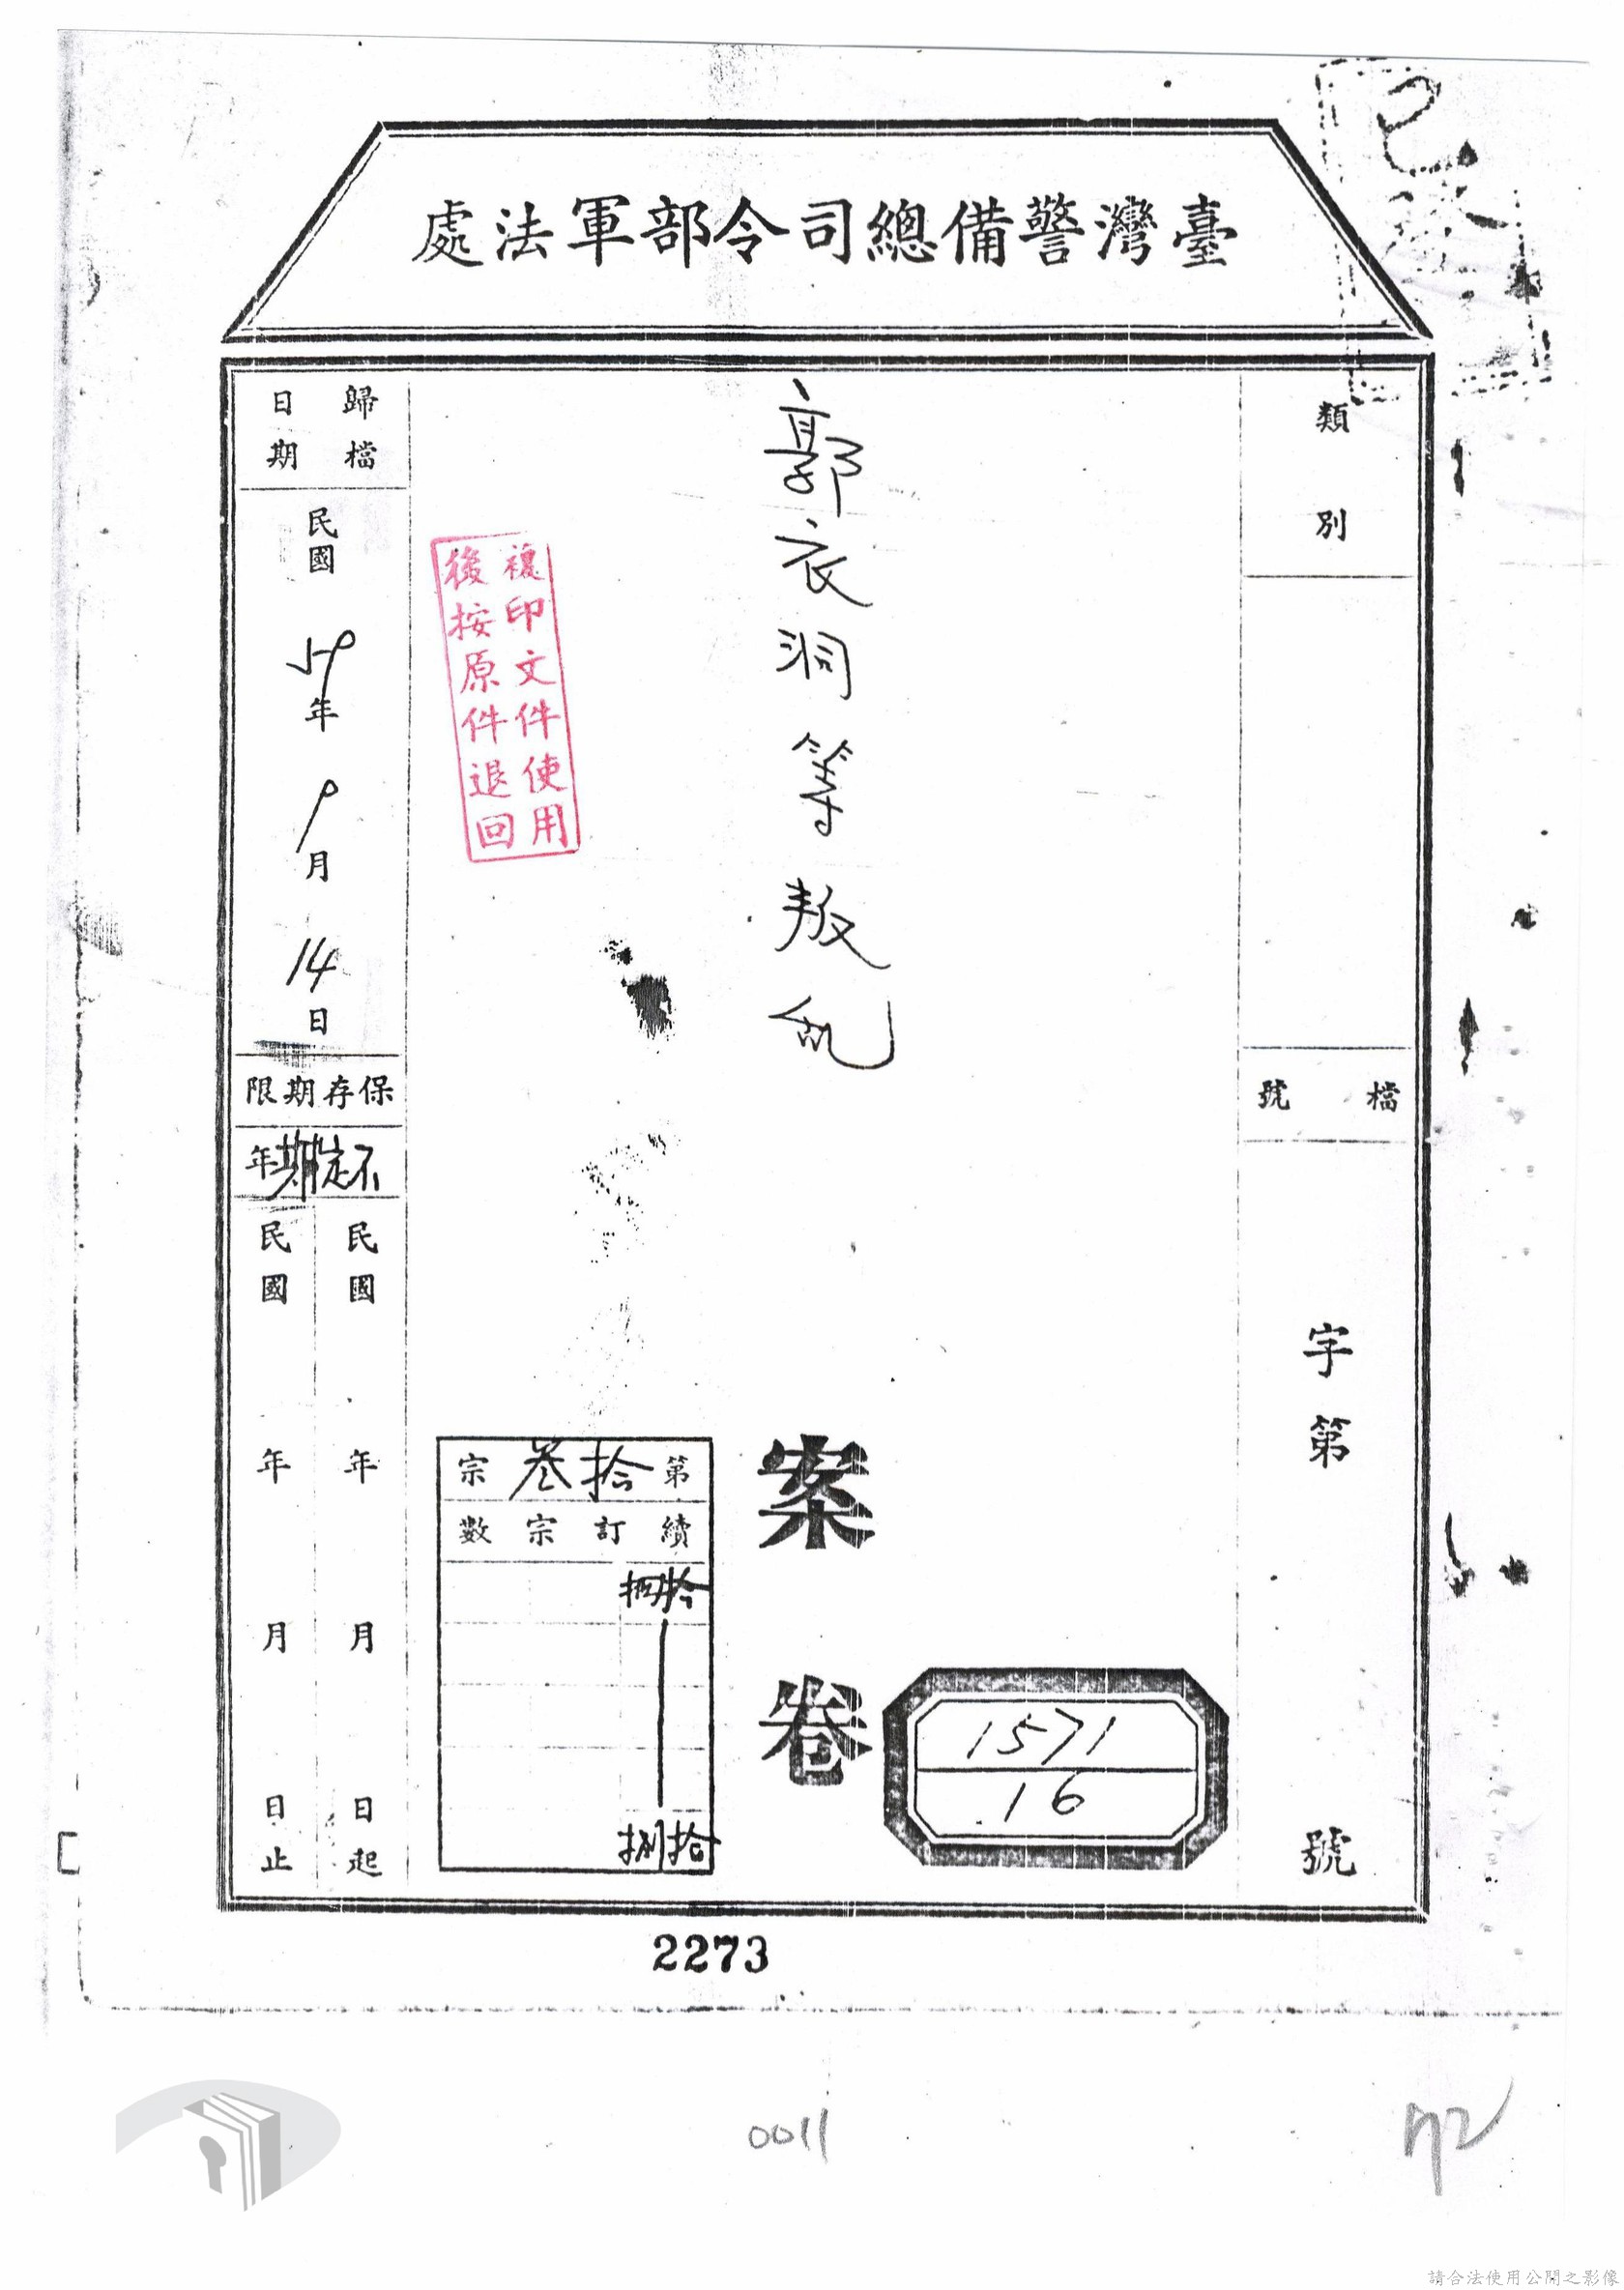 臺灣警備總司令部軍法處
類別
檔號
字第
號
郭衣洞等叛乱
案卷
1571
16
複印文件使用
後按原件退回
第拾叁宗
續訂宗數
拾肆
拾捌
歸檔日期
民國59年9月14日
保存期限
不定期年
民國 年 月 日起
民國 年 月 日止
2273
0011
請合法使用公開之影像